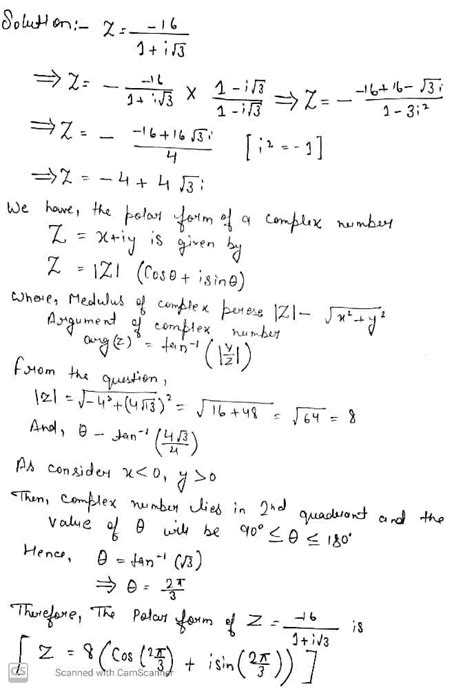 Solution:- Z = -16 / 1+i√3
⇒ Z = - -16 / 1+i√3 × 1-i√3 / 1-i√3 ⇒ Z = - -16+16-√3i / 1-3i²
⇒ Z = - -16+16√3i / 4 [i² = -1]
⇒ Z = -4 + 4√3i
We have, the polar form of a complex number
Z = x+iy is given by
Z = |Z| (Cosθ + isinθ)
Where, Medulus of complex |Z| - √x²+y²
Argument of complex number
arg(z) = tan⁻¹ (|y/z|)
From the question,
|z| = √-4²+(4√3)² = √16+48 = √64 = 8
And, θ - tan⁻¹ (4√3/4)
As consider x<0, y>0
Then, Complex number lies in 2nd quadrant and the
value of θ will be 90° ≤ θ ≤ 180°
Hence, θ = tan⁻¹ (√3)
⇒ θ = 2π/3
Therefore, The Polar form of Z = -16 / 1+i√3 is
[ Z = 8 (Cos (2π/3) + isin (2π/3)) ]
CS Scanned with CamScanner